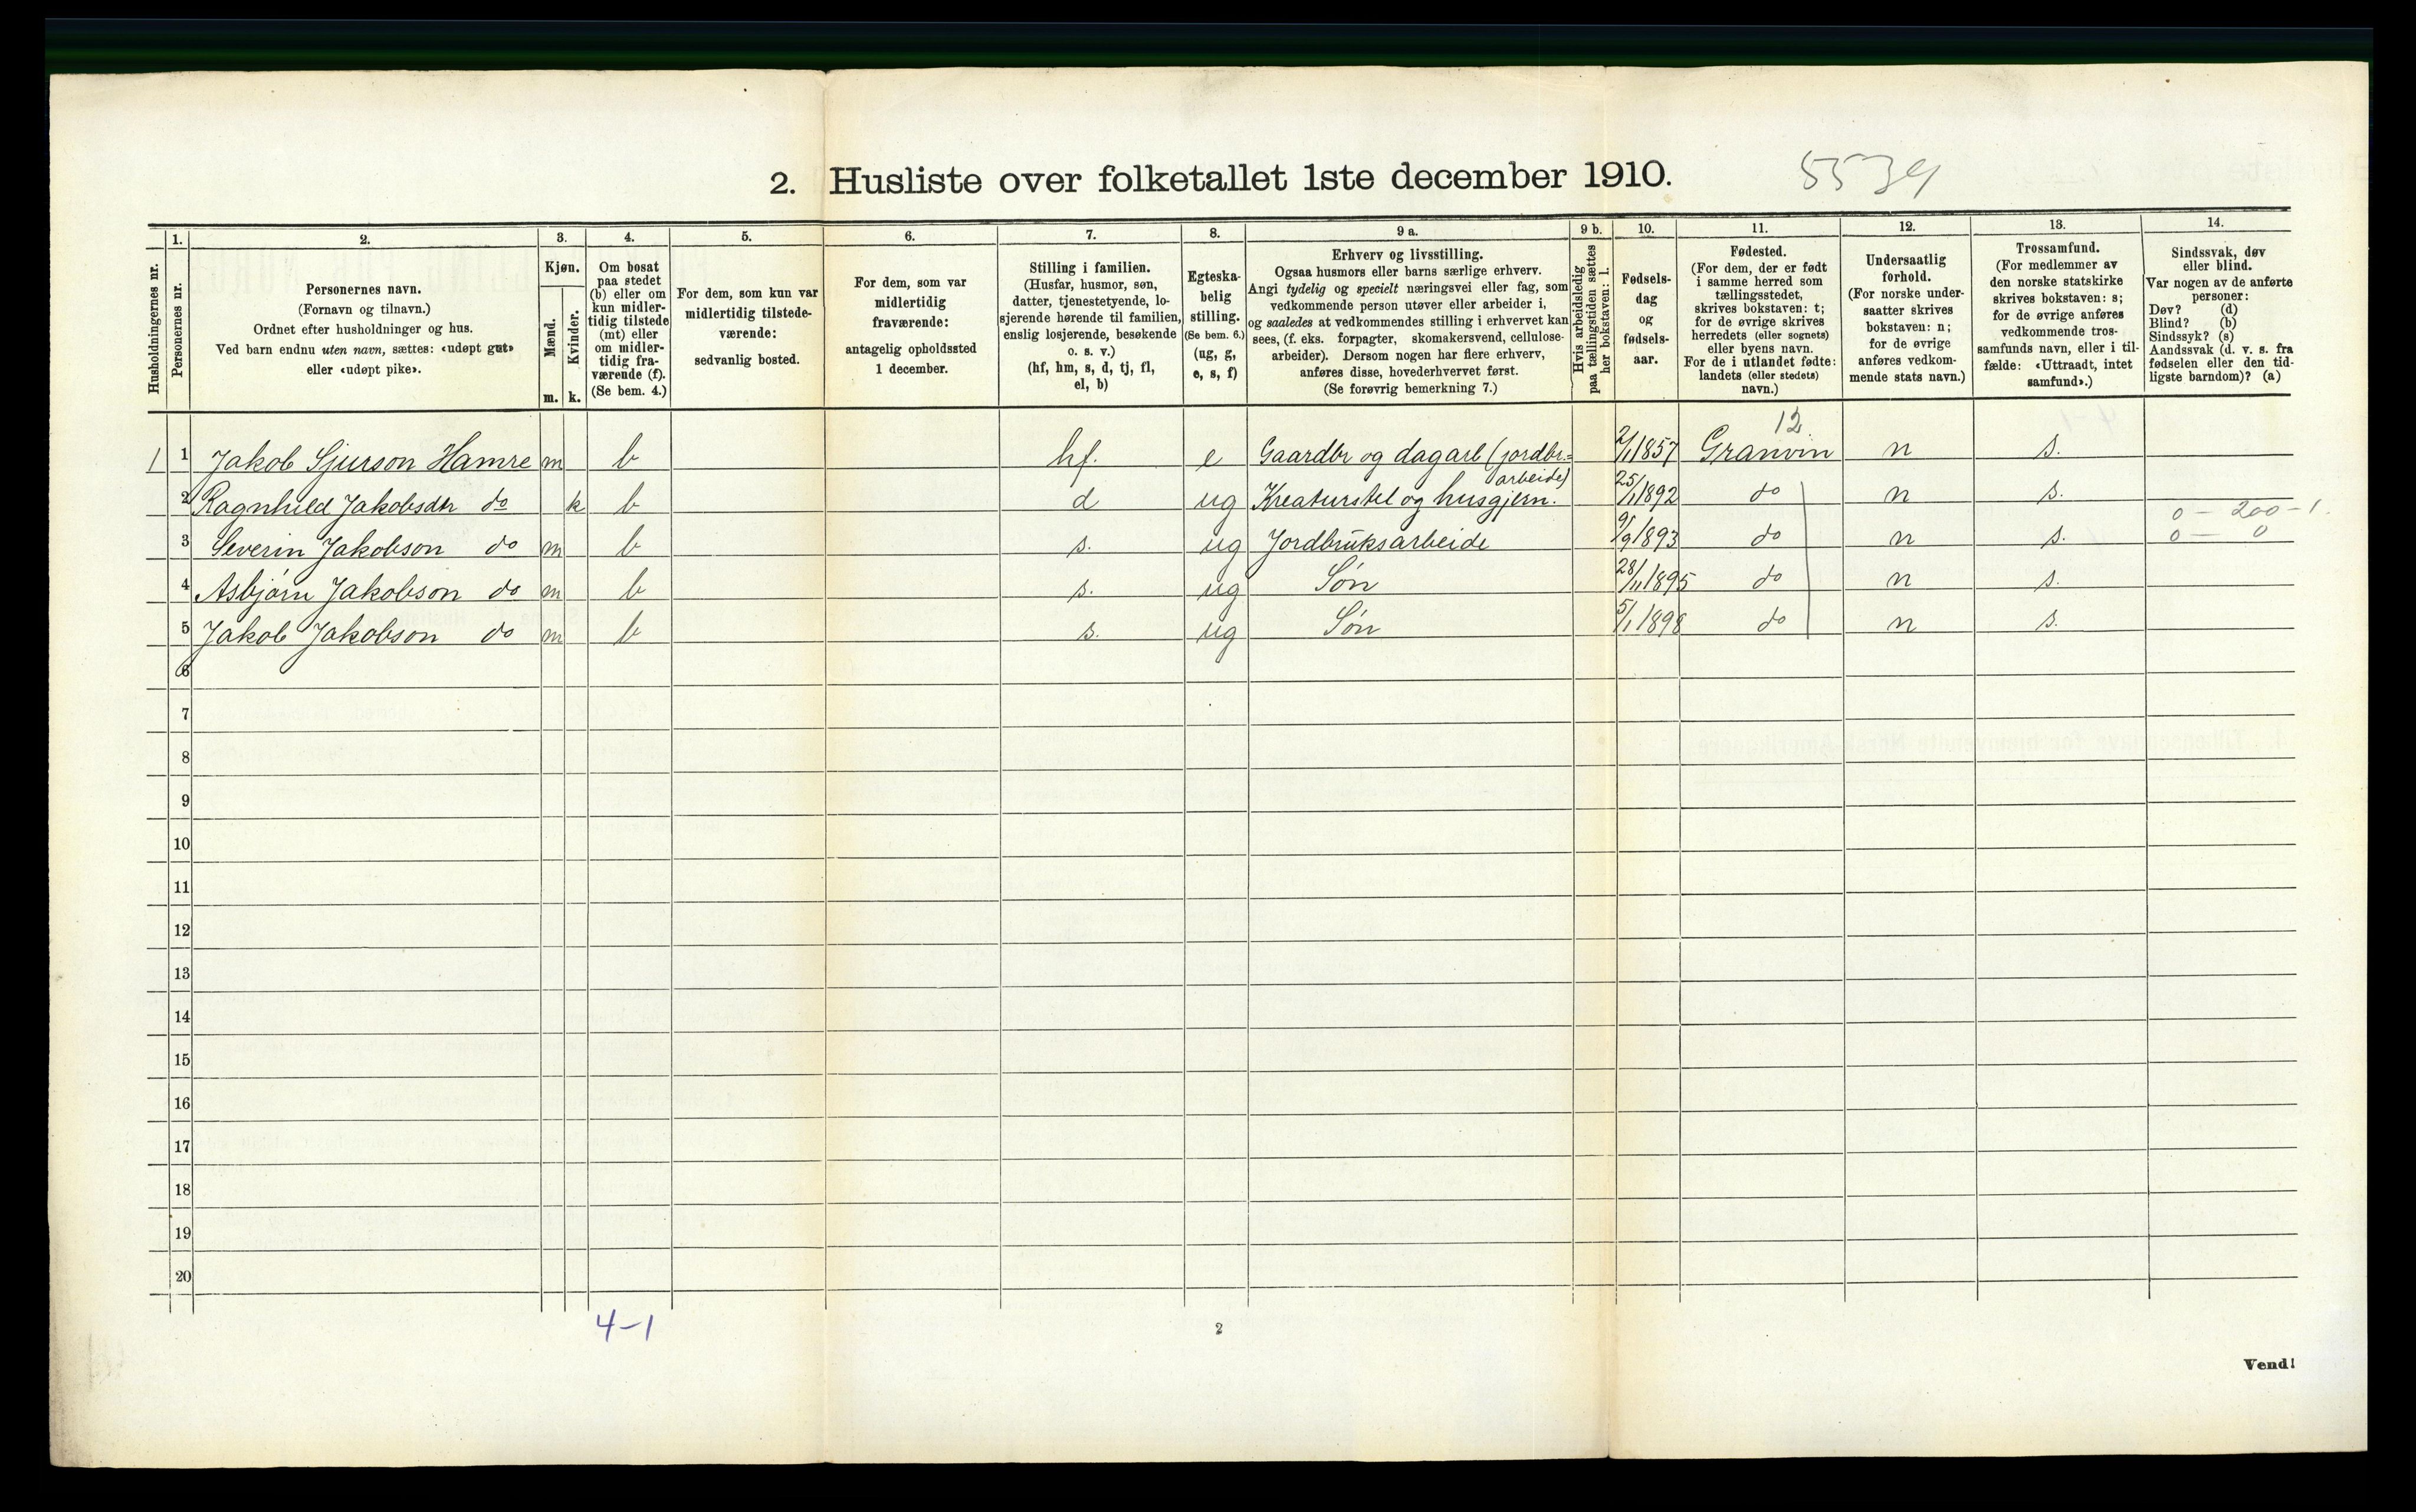 2. Husliste over folketallet 1ste december 1910.
5539
Husholdningernes nr.
1.
Personernes nr.
2.
Personernes navn.
(Fornavn og tilnavn.)
Ordnet efter husholdninger og hus.
Ved barn endnu uten navn, sættes: «udøpt gut»
eller «udøpt pike».
3.
Kjøn.
Mænd.
Kvinder.
m. k.
4.
Om bosat
paa stedet
(b) eller om
kun midler-
tidig tilstede
(mt) eller
om midler-
tidig fra-
værende (f).
(Se bem. 4.)
5.
For dem, som kun var
midlertidig tilstede-
værende:
sedvanlig bosted.
6.
For dem, som var
midlertidig
fraværende:
antagelig opholdssted
1 december.
7.
Stilling i familien.
(Husfar, husmor, søn,
datter, tjenestetyende, lo-
sjerende hørende til familien,
enslig losjerende, besøkende
o. s. v.)
(hf, hm, s, d, tj, fl,
el, b)
8.
Egteska-
belig
stilling.
(Se bem. 6.)
(ug, g,
e, s, f)
9 a.
Erhverv og livsstilling.
Ogsaa husmors eller barns særlige erhverv.
Angi tydelig og specielt næringsvei eller fag, som
vedkommende person utøver eller arbeider i,
og saaledes at vedkommendes stilling i erhvervet kan
sees, (f. eks. forpagter, skomakersvend, cellulose-
arbeider). Dersom nogen har flere erhverv,
anføres disse, hovederhvervet først.
(Se forøvrig bemerkning 7.)
9 b.
Hvis arbeidsledig
paa tællingstiden sættes
her bokstaven: l.
10.
Fødsels-
dag
og
fødsels-
aar.
11.
Fødested.
(For dem, der er født
i samme herred som
tællingsstedet,
skrives bokstaven: t;
for de øvrige skrives
herredets (eller sognets)
eller byens navn.
For de i utlandet fødte:
landets (eller stedets)
navn.)
12.
Undersaatlig
forhold.
(For norske under-
saatter skrives
bokstaven: n;
for de øvrige
anføres vedkom-
mende stats navn.)
13.
Trossamfund.
(For medlemmer av
den norske statskirke
skrives bokstaven: s;
for de øvrige anføres
vedkommende tros-
samfunds navn, eller i til-
fælde: «Uttraadt, intet
samfund».)
14.
Sindssvak, døv
eller blind.
Var nogen av de anførte
personer:
Døv? (d)
Blind? (b)
Sindssyk? (s)
Aandssvak (d. v. s. fra
fødselen eller den tid-
ligste barndom)? (a)
12
1 1 Jakob Sjurson Hamre m b hf. e Gaardbr og dagarb (jordbr.= 2/1 1857 Granvin n s.
arbeide)
2 Ragnhild Jakobsdtr do k b d ug Kreaturstel og husgjern. 25/1 1892 do n s.
0 – 200 – 1.
3 Severin Jakobson do m b s. ug Jordbruksarbeide 9/9 1893 do n s. 0 – 0
4 Asbjørn Jakobson do m b s. ug Søn 28/11 1895 do n s.
5 Jakob Jakobson do m b s. ug Søn 5/1 1898 do n s.
6
7
8
9
10
11
12
13
14
15
16
17
18
19
20
4–1
2
Vend!